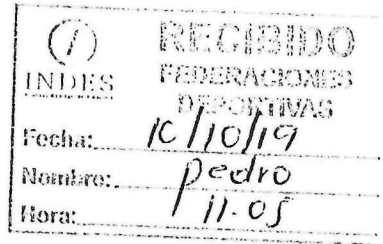 RECIBIDO
INDES
FEDERACIONES
DEPORTIVAS
Fecha: 10/10/19
Nombre: pedro
Hora: 11.05